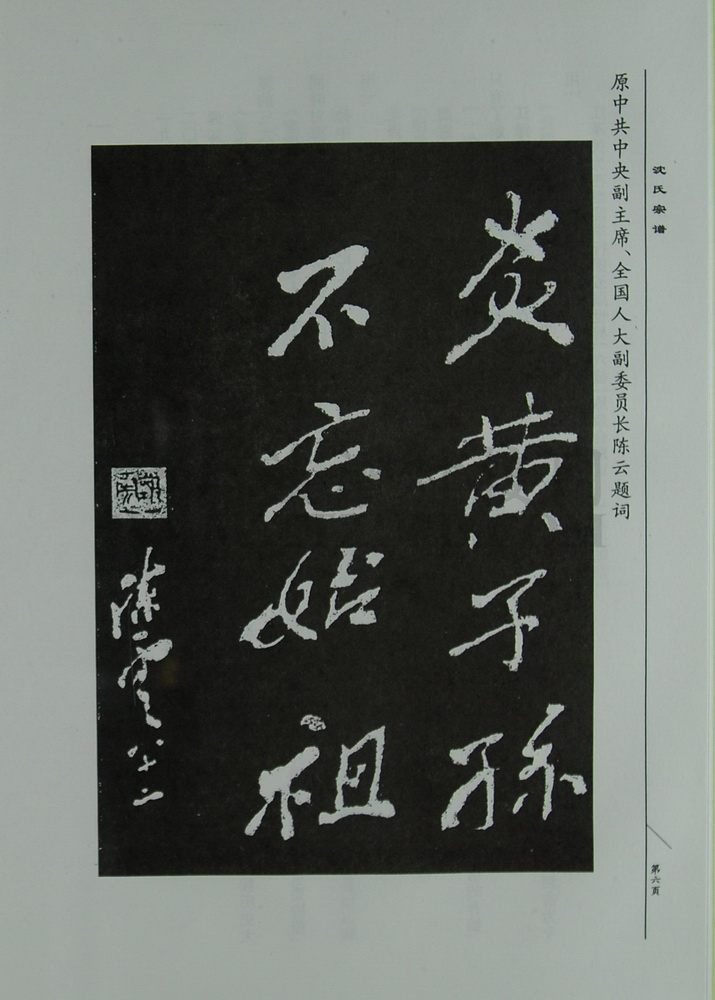 沈氏宗谱
原中共中央副主席、全国人大副委员长陈云题词
炎黄子孫
不忘始祖
陈雲八十二
第六页